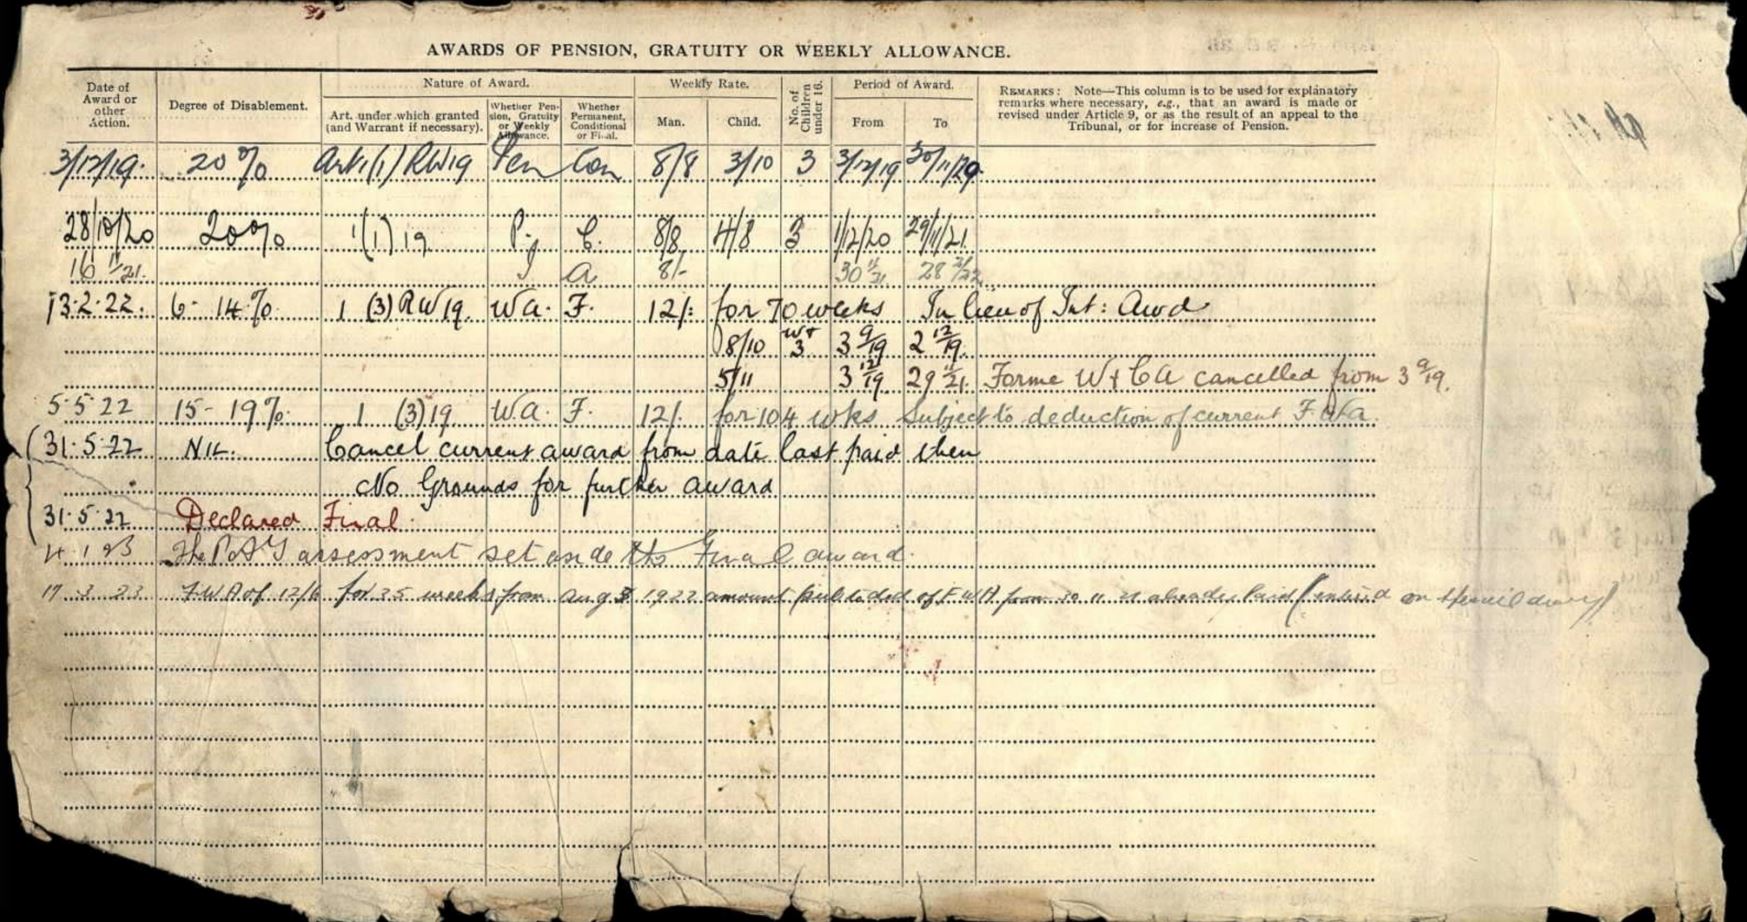 AWARDS OF PENSION, GRATUITY OR WEEKLY ALLOWANCE.
Date of Award or other Action.
Degree of Disablement.
Nature of Award.
Art. under which granted (and Warrant if necessary).
Whether Pension, Gratuity or Weekly Allowance.
Whether Permanent, Conditional or Final.
Weekly Rate.
Man.
Child.
No. of Children under 16.
Period of Award.
From
To
REMARKS: Note—This column is to be used for explanatory remarks where necessary, e.g., that an award is made or revised under Article 9, or as the result of an appeal to the Tribunal, or for increase of Pension.
3/12/19. 20% Art 1(1) RW19 Pen Con 8/8 3/10 3 3/12/19 30/11/20.
28/10/20 20% 1(1) 19 C. 8/8 4/8 3 1/12/20 29/11/21.
16 11/21. A 8/- 30 11/21 28 2/22
13.2.22. 6 - 14%. 1 (3) RW19. WA. F. 12/- for 70 weeks In lieu of Int: Awd
8/10 W+3 3 9/19 2 12/19.
5/11 3 12/19 29 11/21. Forme W+CA cancelled from 3 9/19.
5.5.22 15 - 19% 1 (3) 19. W.A. F. 12/- for 104 wks Subject to deduction of current F.WA.
31.5.22 NIL. Cancel current award from date last paid then
No Grounds for further award
31.5.22 Declared Final.
4.1.23 The assessment set aside the Final award.
17.3.23 FWA of 12/6 for 35 weeks from Aug 3 1922 amount of FWA from 30 11 21 already paid (